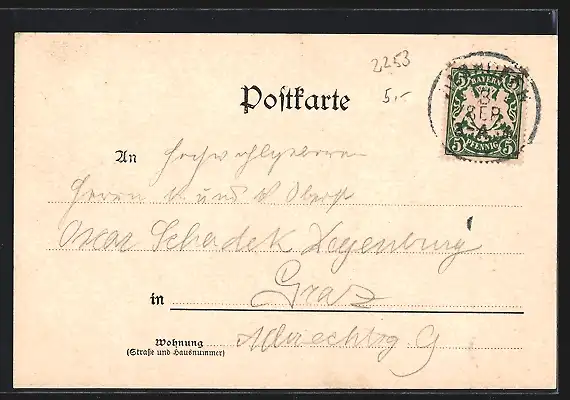 2253
5,-
Postkarte
5 5
BAYERN
8
SEP.
A
PFENNIG
5 5
An Hochwohlgeboren
Herrn k und k Oberst
Oscar Schadek
Graz
in
Wohnung
(Straße und Hausnummer)
9